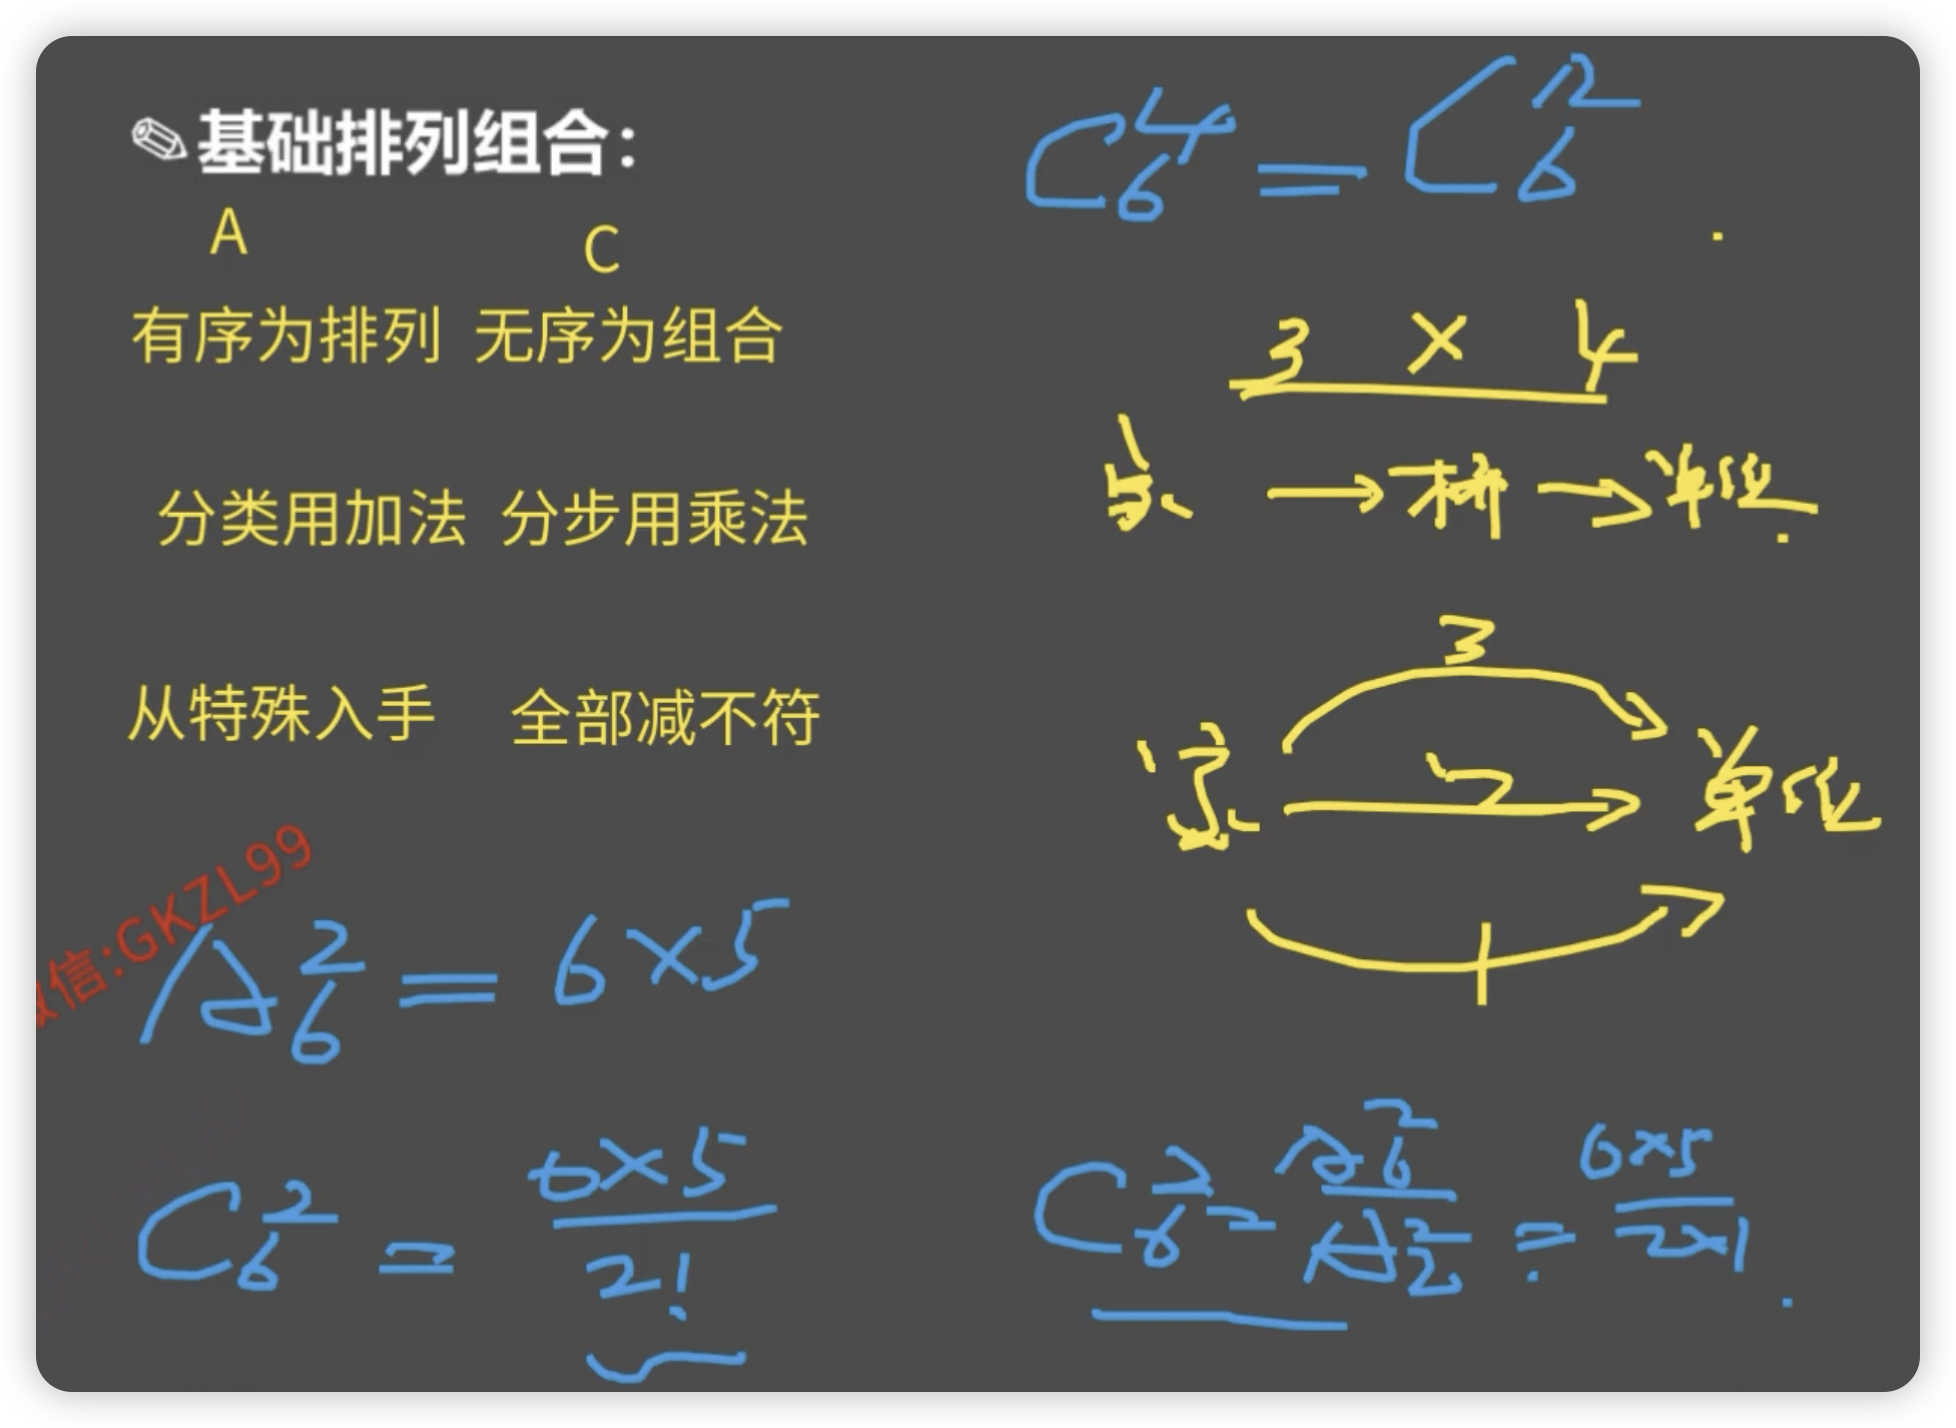 基础排列组合：
A C
有序为排列 无序为组合
分类用加法 分步用乘法
从特殊入手 全部减不符
微信:GKZL99
A₆² = 6×5
C₆² = 6×5/2!
C₆⁴ = C₆²
3 × 4
家 → 桥 → 单位
3
家 2 单位
1
C₆² = A₆²/A₂² = 6×5/2×1